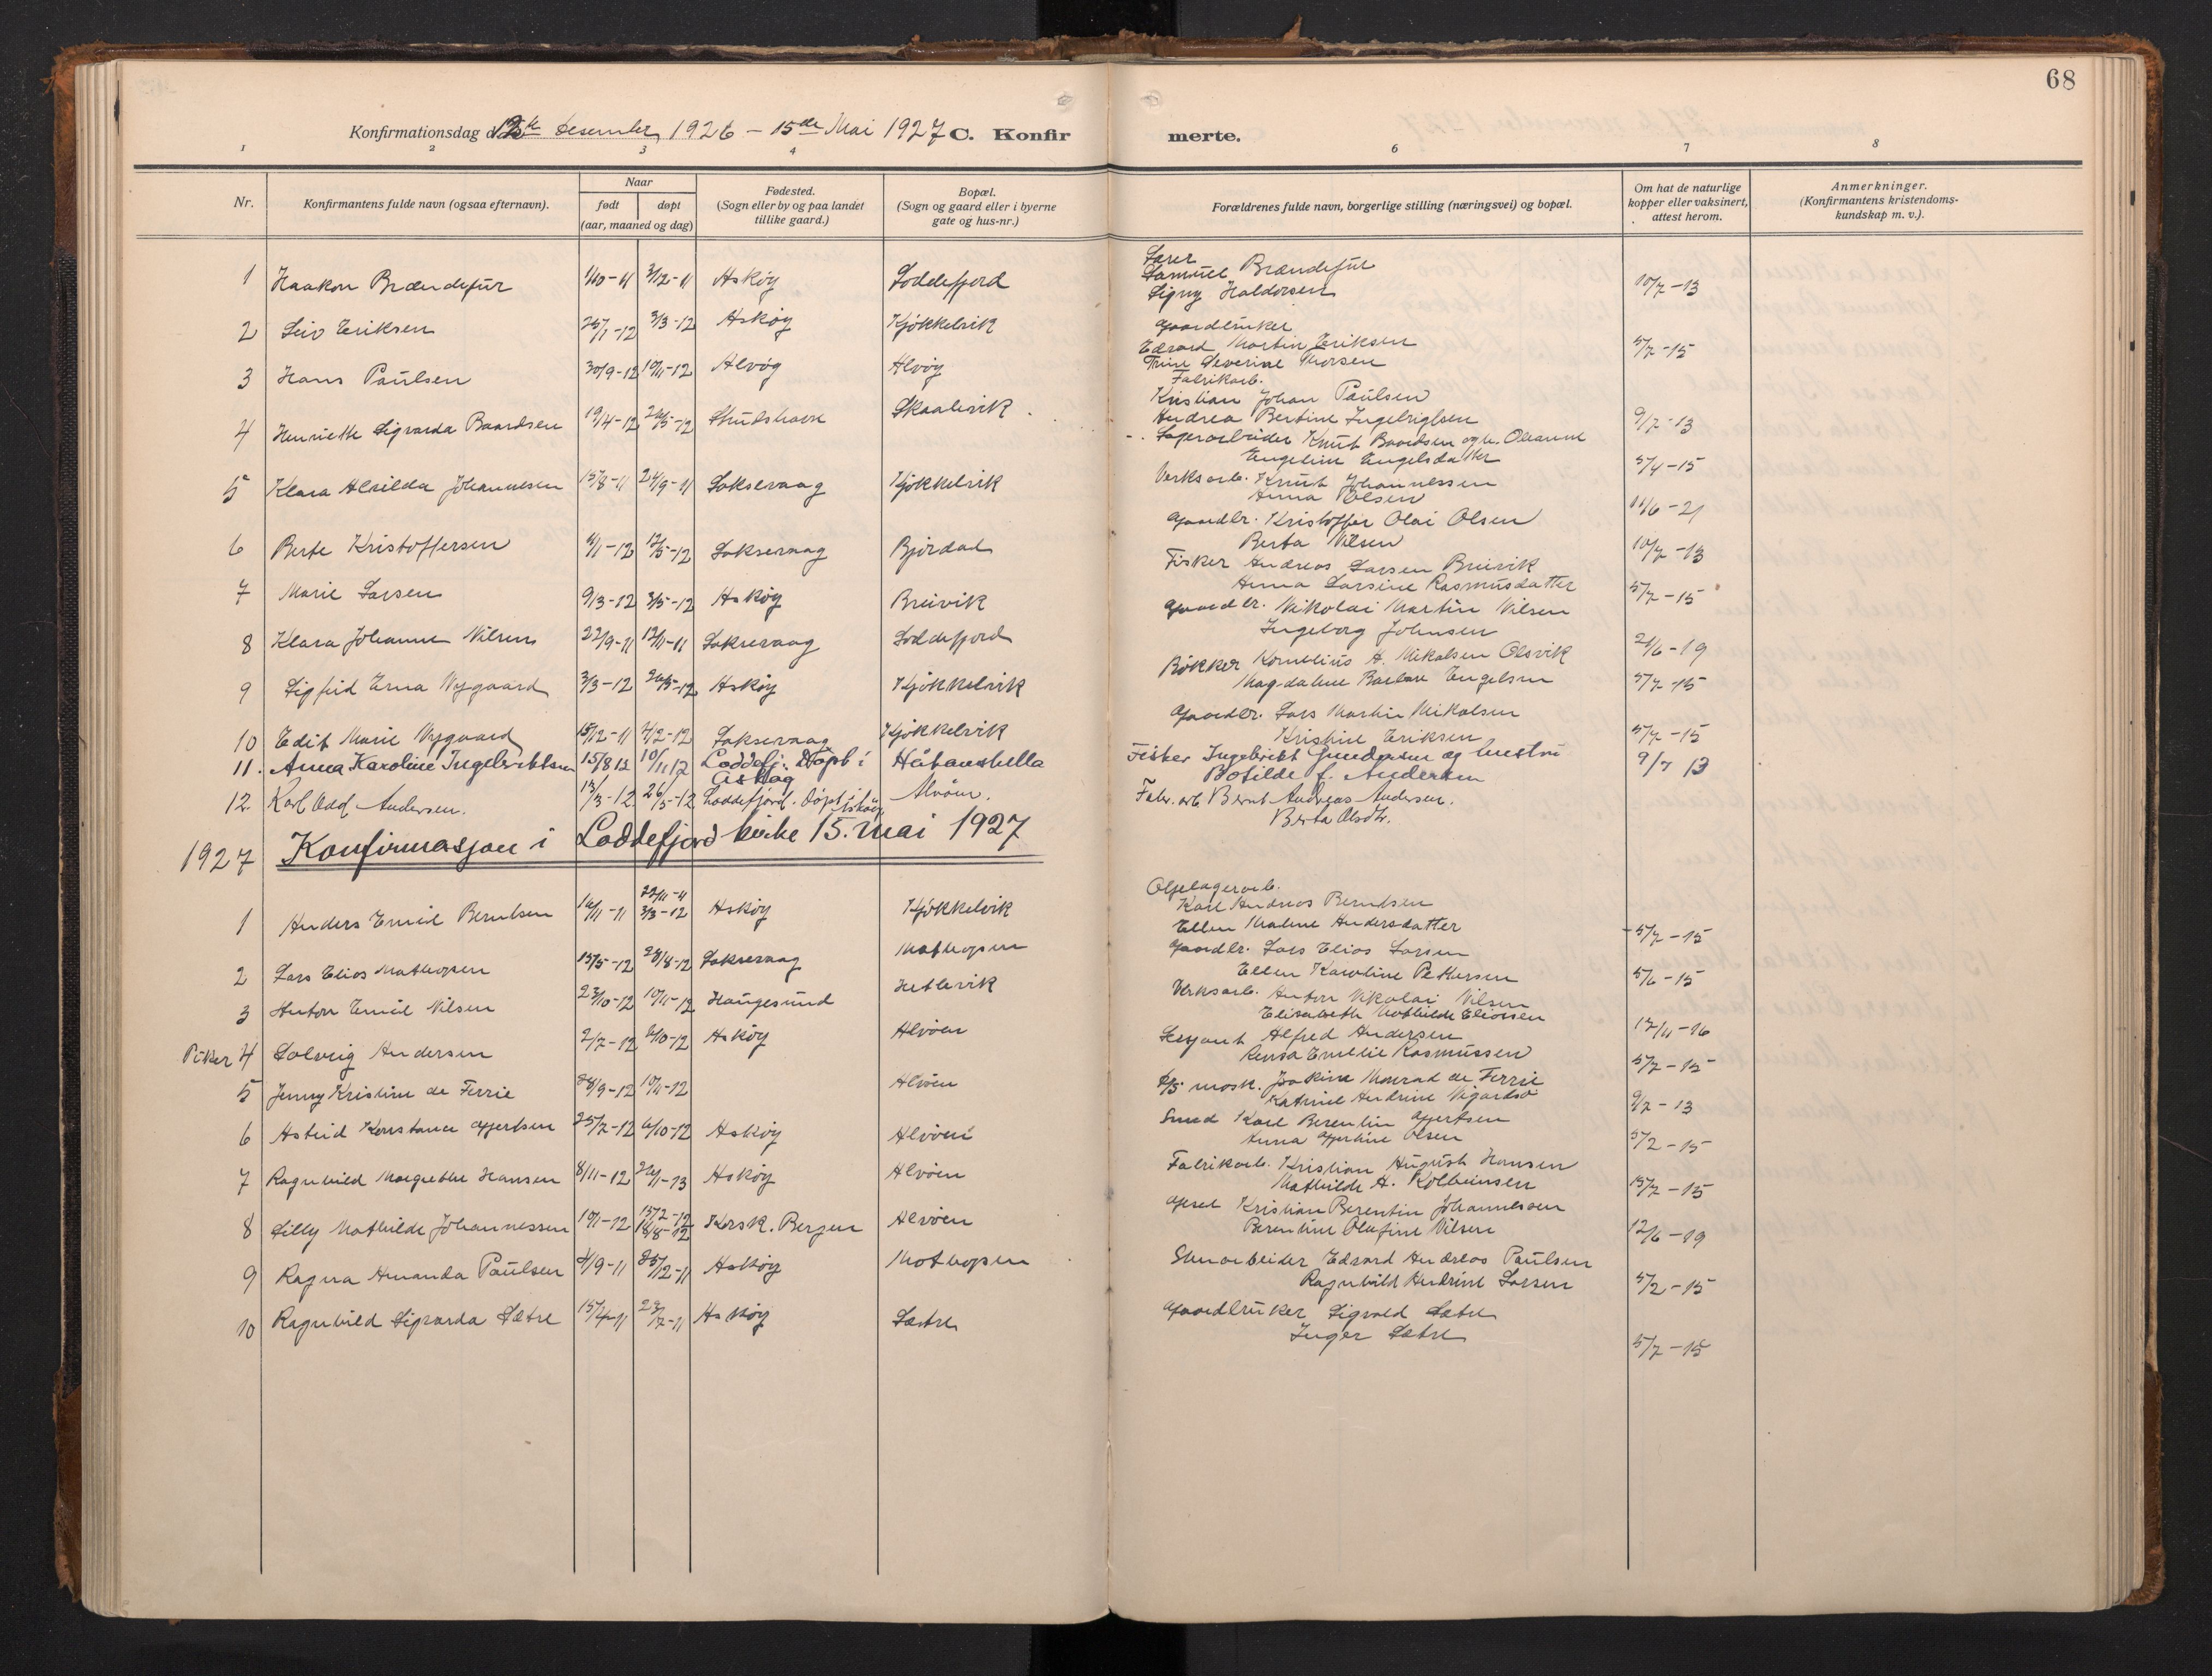 68
Konfirmationsdag d. 12te desember 1926 – 15de Mai 1927 C. Konfirmerte.
1 2 3 4 6 7 8
Nr.
Konfirmantens fulde navn (ogsaa efternavn).
Naar
født døpt
(aar, maaned og dag)
Fødested.
(Sogn eller by og paa landet
tillike gaard.)
Bopæl.
(Sogn og gaard eller i byerne
gate og hus-nr.)
Forældrenes fulde navn, borgerlige stilling (næringsvei) og bopæl.
Om hat de naturlige
kopper eller vaksinert,
attest herom.
Anmerkninger.
(Konfirmantens kristendoms-
kundskap m. v.).
1 Haakon Brændefur 1/10-11 3/12-11 Askøy Loddefjord
Samuel Brændefur
Signy Haldorsen
10/7-13
2 Leiv Eriksen 25/1-12 3/3-12 Askøy Kjøkkelvik
Gaardbruker
Edvard Martin Eriksen
Trine Severine Thorsen
5/7-15
3 Hans Paulsen 30/9-12 10/11-12 Alvøy Alvøy
Fabrikarb.
Kristian Johan Paulsen
Andrea Bertine Ingebrigtsen
9/7-13
4 Henriette Sigvarda Baardsen 19/4-12 26/5-12 Skaalevik
Lagerarbeider Knut Baardsen og h. Oleanne
Engeline Engelsdatter
5/4-15
5 Klara Alvilda Johannesen 15/8-11 24/9-11 Laksevaag Kjøkkelvik
Verksarb. Knut Johannessen
Anna Olsen
11/6-21
6 Berte Kristoffersen 4/1-12 12/5-12 Laksevaag Bjørdal
Gaardbr. Kristoffer Olai Olsen
Berta Nilsen
10/7-13
7 Marie Larsen 9/3-12 3/5-12 Askøy Breivik
Fisker Andreas Larsen Breivik
Anna Larsine Rasmusdatter
5/7-15
8 Klara Johanne Nilsen 22/9-11 12/11-11 Laksevaag Loddefjord
Gaardbr. Nikolai Martin Nilsen
Ingeborg Johnsen
21/6-19
9 Sigfrid Erna Nygaard 3/3-12 26/5-12 Askøy Kjøkkelvik
Bøkker Kornelius A. Mikalsen Olsvik
Magdalene Barbara Engelsen
5/7-15
10 Edit Marie Nygaard 15/12-11 4/2-12 Laksevaag Kjøkkelvik
Gaardbr. Lars Martin Mikalsen
Kristine Eriksen
5/7-15
11. Anna Karoline Ingebriktsen 15/8 12 10/11 12 Loddefj. Døpt i Askøy Håkonshella
Fisker Ingebrikt Gundersen og hustru
Botilde f. Andersen
9/7 13
12. Karl Odd Andersen. 13/3-12 26/5-12 Loddefjord. Døpt i Askøy Alvøen.
Fabr. arb Bernt Andreas Andersen.
Berta Olsdtr.
1927 Konfirmasjon i Loddefjord kirke 15. mai 1927
1 Anders Emil Berntsen 16/11-11 22/11-11 3/3-12 Askøy Kjøkkelvik
Oljelagerarb.
Karl Andreas Berntsen
Ellen Malene Andersdatter
5/7-15
2 Lars Elias Mathopen 15/5-12 28/8-12 Laksevaag Mathopen
Gaardbr. Lars Elias Larsen
Ellen Karoline Pettersen
5/6-15
3 Anton Emil Nilsen 23/10-12 10/11-12 Haugesund Hetlevik
Verksarb. Anton Nikolai Nilsen
Elisabeth Mathilde Eliassen
17/11-16
Piker 4 Solveig Andersen 2/7-12 6/10-12 Askøy Alvøen
Sersjant Alfred Andersen
Emelie Rasmussen
5/7-15
5 Jenny Kristine de Ferrie 28/9-12 10/11-12 Alvøen
mask. Joakim Monrad de Ferrie
Katrine Andrine
9/7-13
6 Astrid Konstance Gjertsen 25/7-12 6/10-12 Askøy Alvøen
Smed Karl Berentin Gjertsen
Anna Gjertine Olsen
5/2-15
7 Ragnhild Margrethe Hansen 8/11-12 26/1-13 Askøy Alvøen
Fabrikarb. Kristian August Hansen
Mathilde A. Kolbeinsen
15/7-15
8 Lilly Mathilde Johannessen 10/1-12 15/2-12 18/8-12 Korsk. Bergen Alvøen
Kristian Berentin Johannessen
Berentine Olufine Nilsen
12/6-19
9 Ragna Amanda Paulsen 4/9-11 25/12-11 Askøy Mathopen
Edvard Andreas Paulsen
Ragnhild Andrine Larsen
5/2-15
10 Ragnhild Sigvarda Sætre 15/4-11 23/7-11 Askøy Sætre
Gaardbruker Sigvald Sætre
Inger Sætre
5/7-15